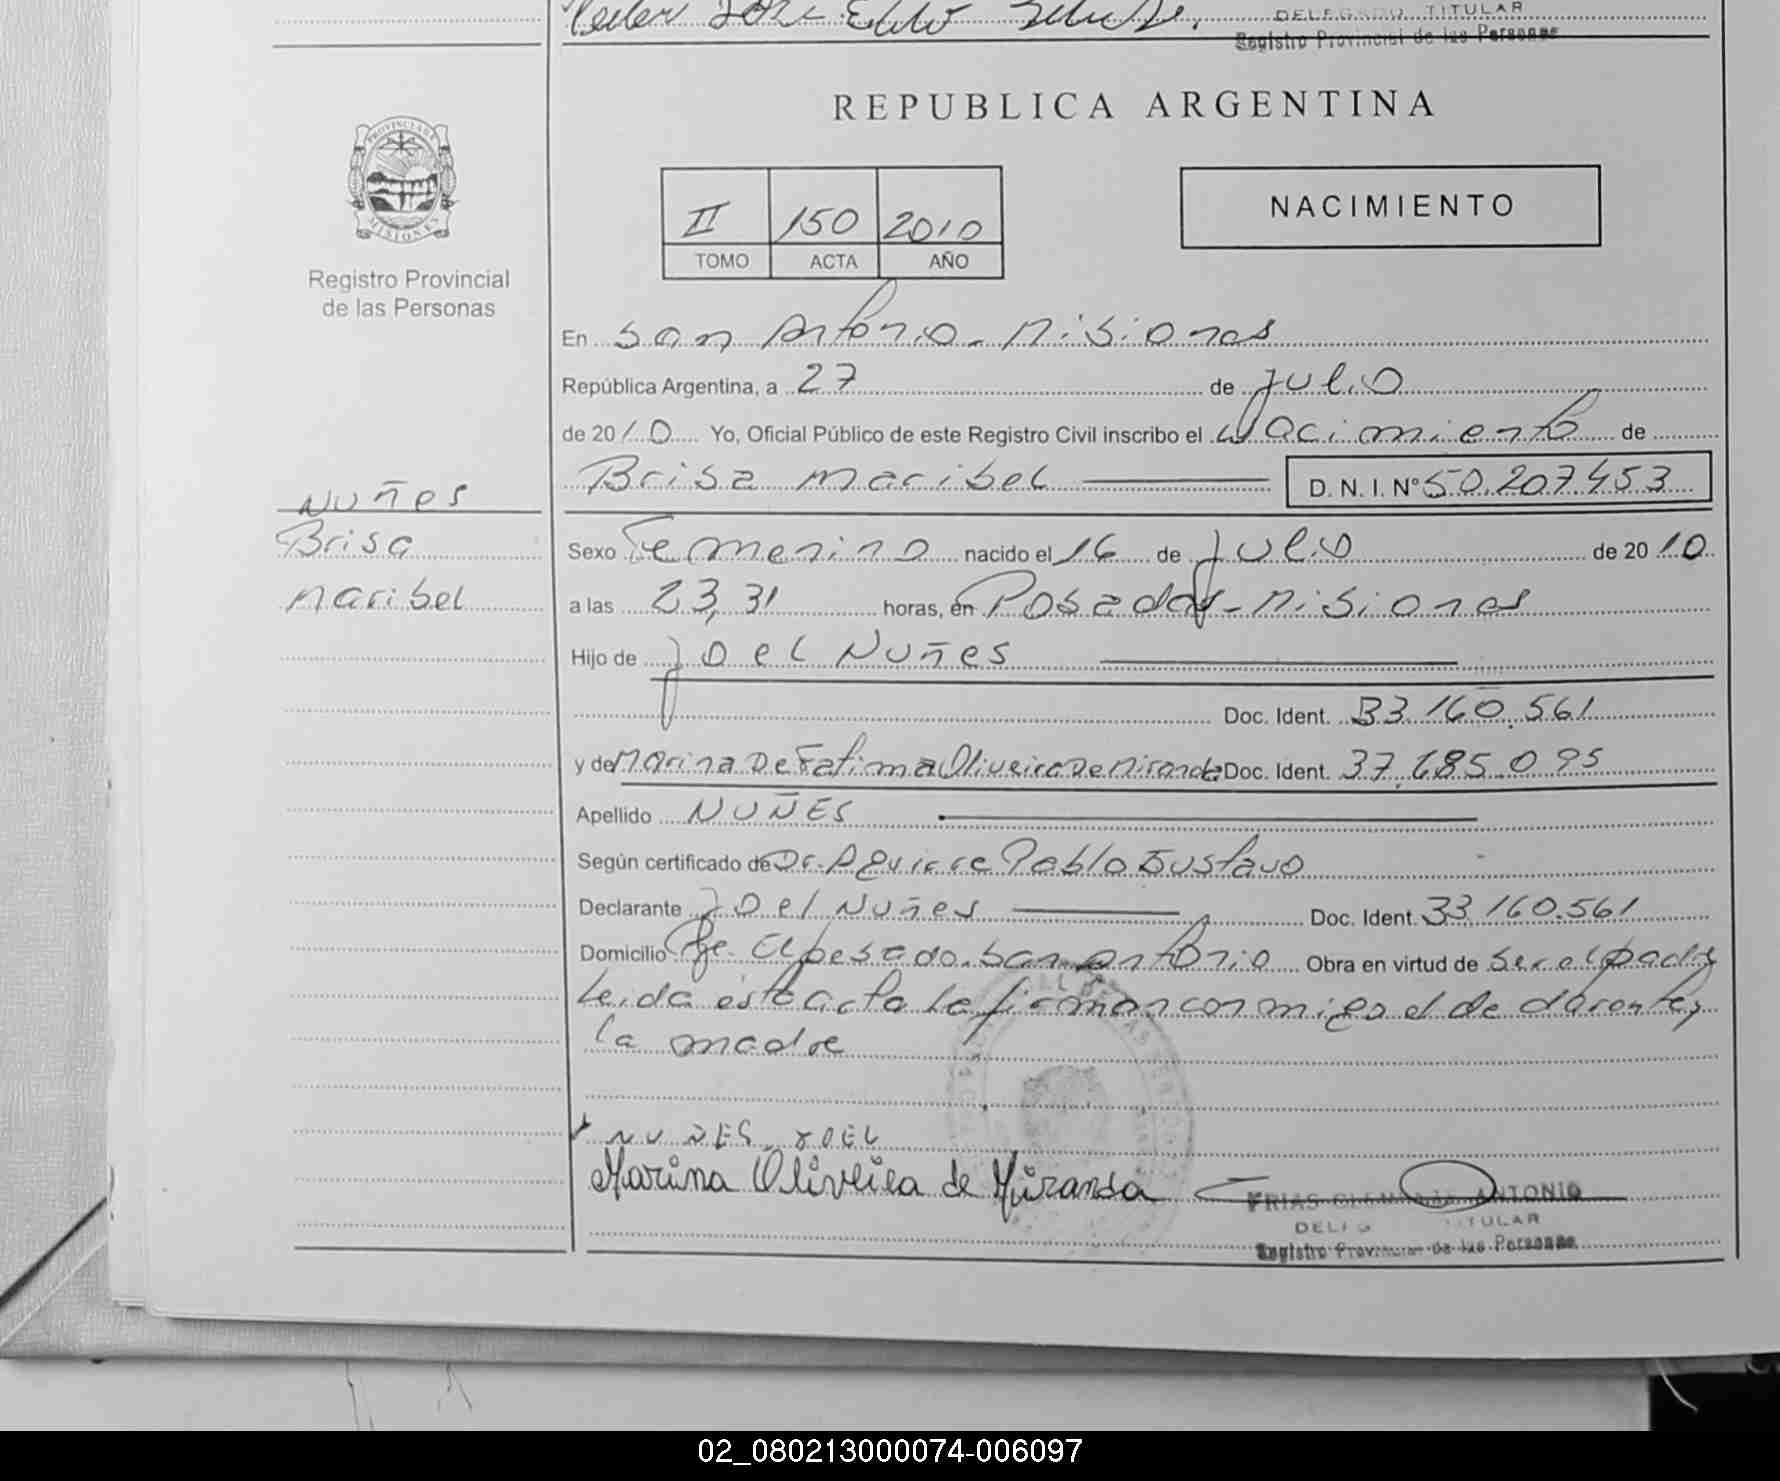 DELEGADO TITULAR
Registro Provincial de las Personas
REPUBLICA ARGENTINA
PROVINCIA DE
MISIONES
Registro Provincial
de las Personas
II 150 2010
TOMO ACTA AÑO
NACIMIENTO
En San Antonio - Misiones
República Argentina, a 27 de Julio
de 2010 Yo, Oficial Público de este Registro Civil inscribo el Nacimiento de
Brisa Maribel D.N.I. N° 50.207.453
Nuñes
Brisa
Maribel
Sexo Femenino nacido el 16 de Julio de 2010
a las 23,31 horas, en Posadas - Misiones
Hijo de Joel Nuñes
Doc. Ident. 33.160.561
y de Marina De Fatima Oliveira De Miranda Doc. Ident. 37.185.095
Apellido NUÑES
Según certificado de Dr. Aguirre Pablo Gustavo
Declarante Joel Nuñes Doc. Ident. 33.160.561
Domicilio Pje. El pesado. San Antonio Obra en virtud de ser el padre
Leida esta acta la firman conmigo el declarante y
la madre
NUÑES JOEL
Marina Oliveira de Miranda
FRIAS CLEMENTE ANTONIO
DELEG TITULAR
Registro Provincial de las Personas
02_080213000074-006097